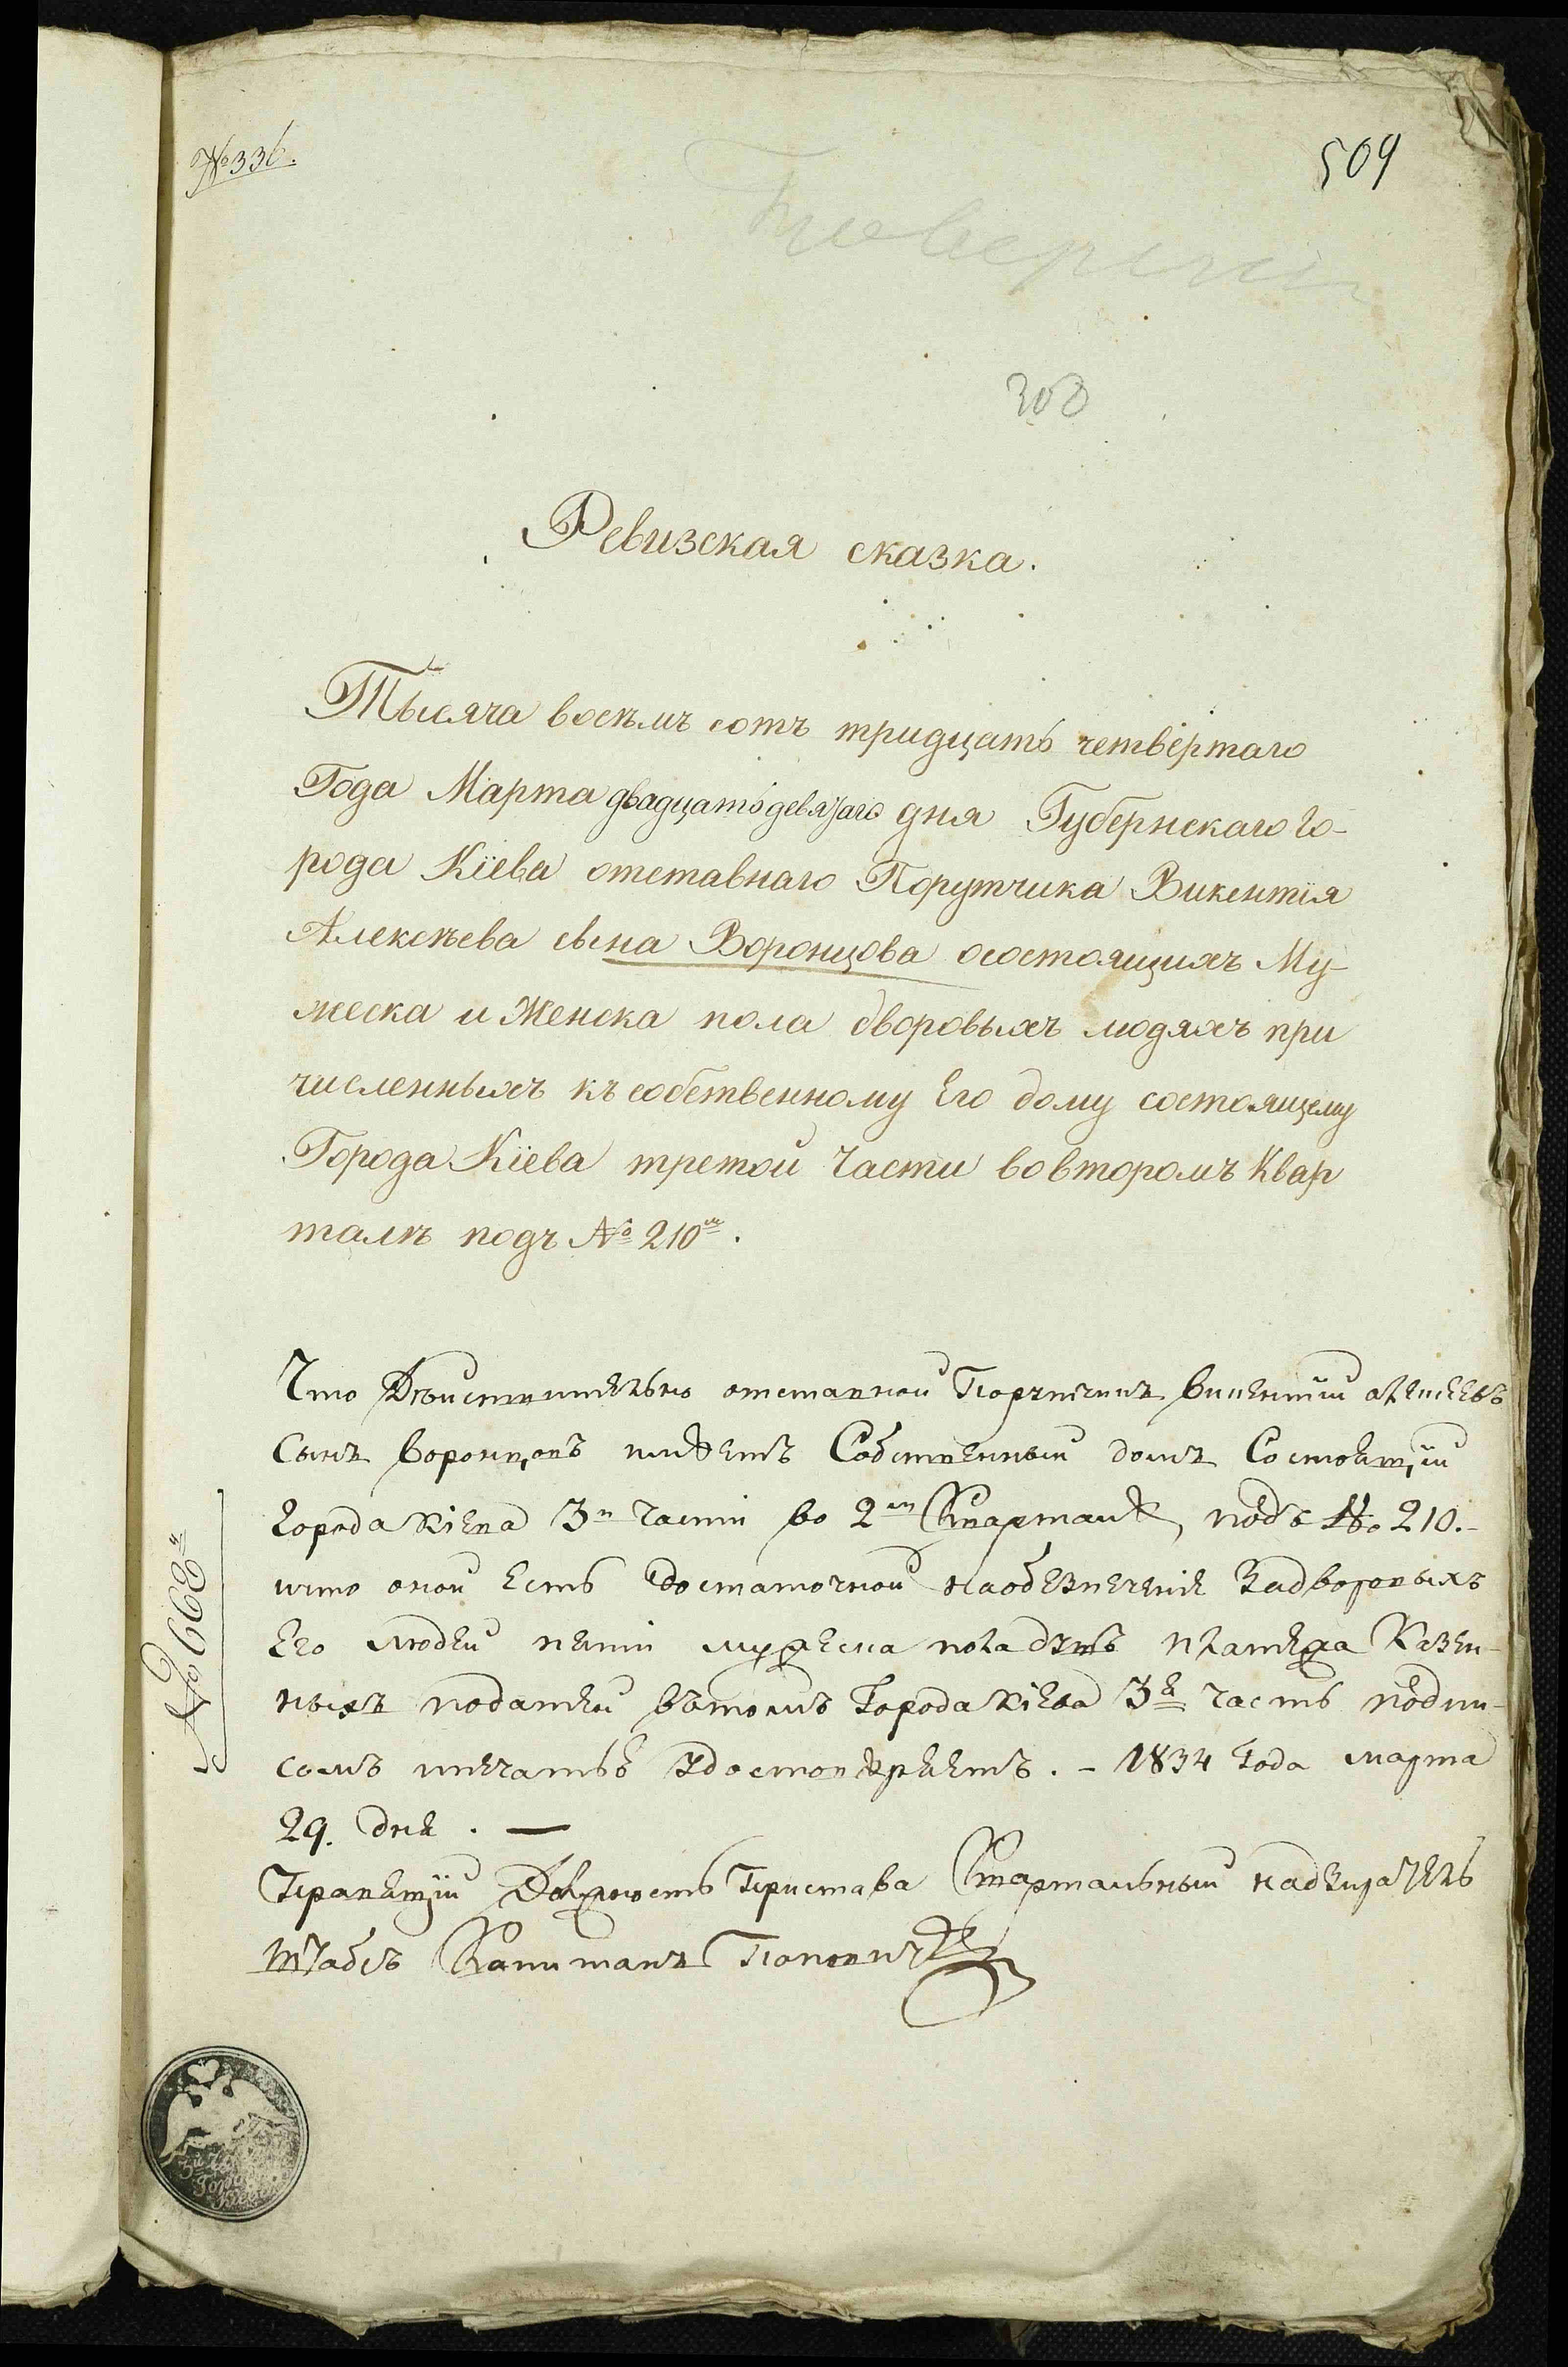 № 336.
509
Ревизская сказка.
Тысяча восѣмъ сотъ тридцать четвёртаго
Года Марта двадцать девятаго дня Губернскаго го-
рода Кіева отставнаго Порутчика Викентія
Алексѣева сына Воронцова осостоящихъ Му-
жеска и Женска пола дворовыхъ людяхъ при
численныхъ къ собственному Его дому состоящему
Города Кіева третой Части вовторомъ Квар
талѣ подъ № 210м.
Что Дѣиствительно отставной Порутчикъ Викентій Алексеевъ
Сынъ Воронцовъ имѣетъ Собственный домъ Состоящій
Города Кіева 3й Части во 2м Кварталѣ, подъ № 210.-
ичто оной Есть достаточной наобезпеченія Задворовыхъ
Его людей пяти мужеска пола душъ платежа Казен-
ныхъ податей вътомъ Города Кіева 3я часть подпи-
сомъ ипечатью удостоверяетъ. - 1834 Года марта
29. дня. —
Исправляющій Должность Пристава Квартальный надзиратель
Штабсъ Капитанъ Поповичъ
№ 668й
3й Ча
Горо
Кіев